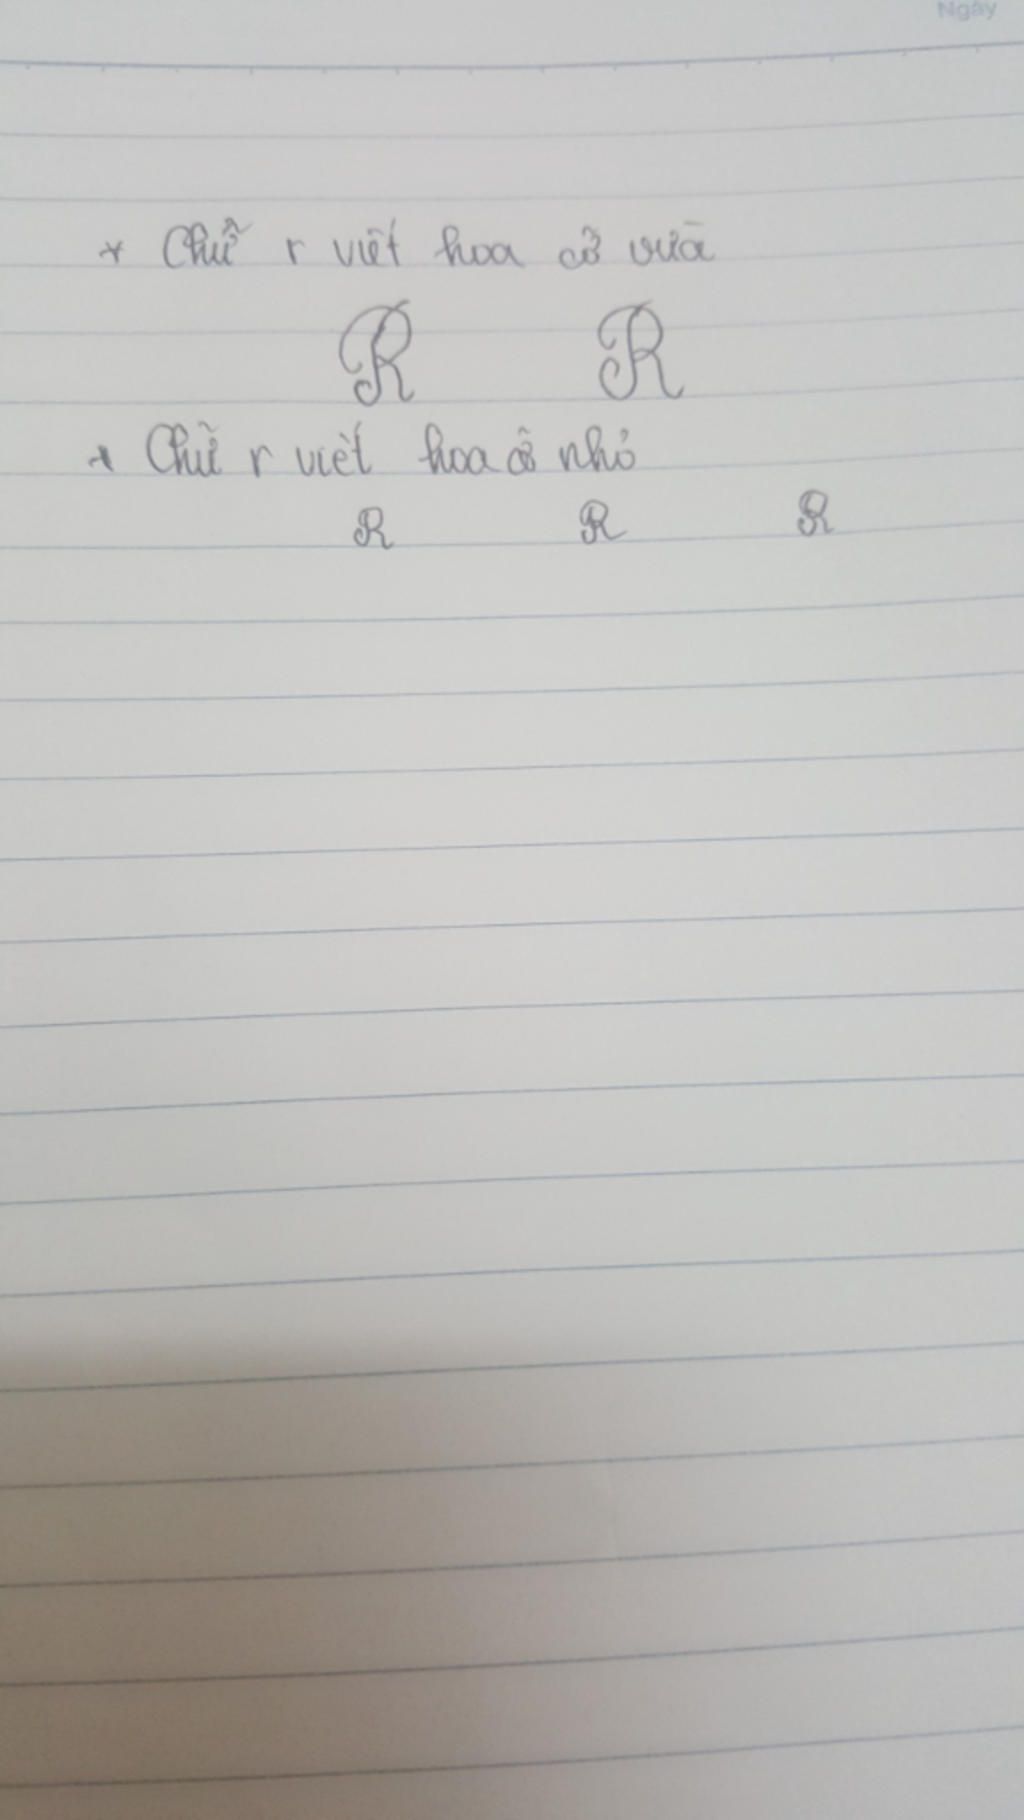 Ngày
* Chữ r viết hoa cỡ vừa
R R
* Chữ r viết hoa cỡ nhỏ
R R R